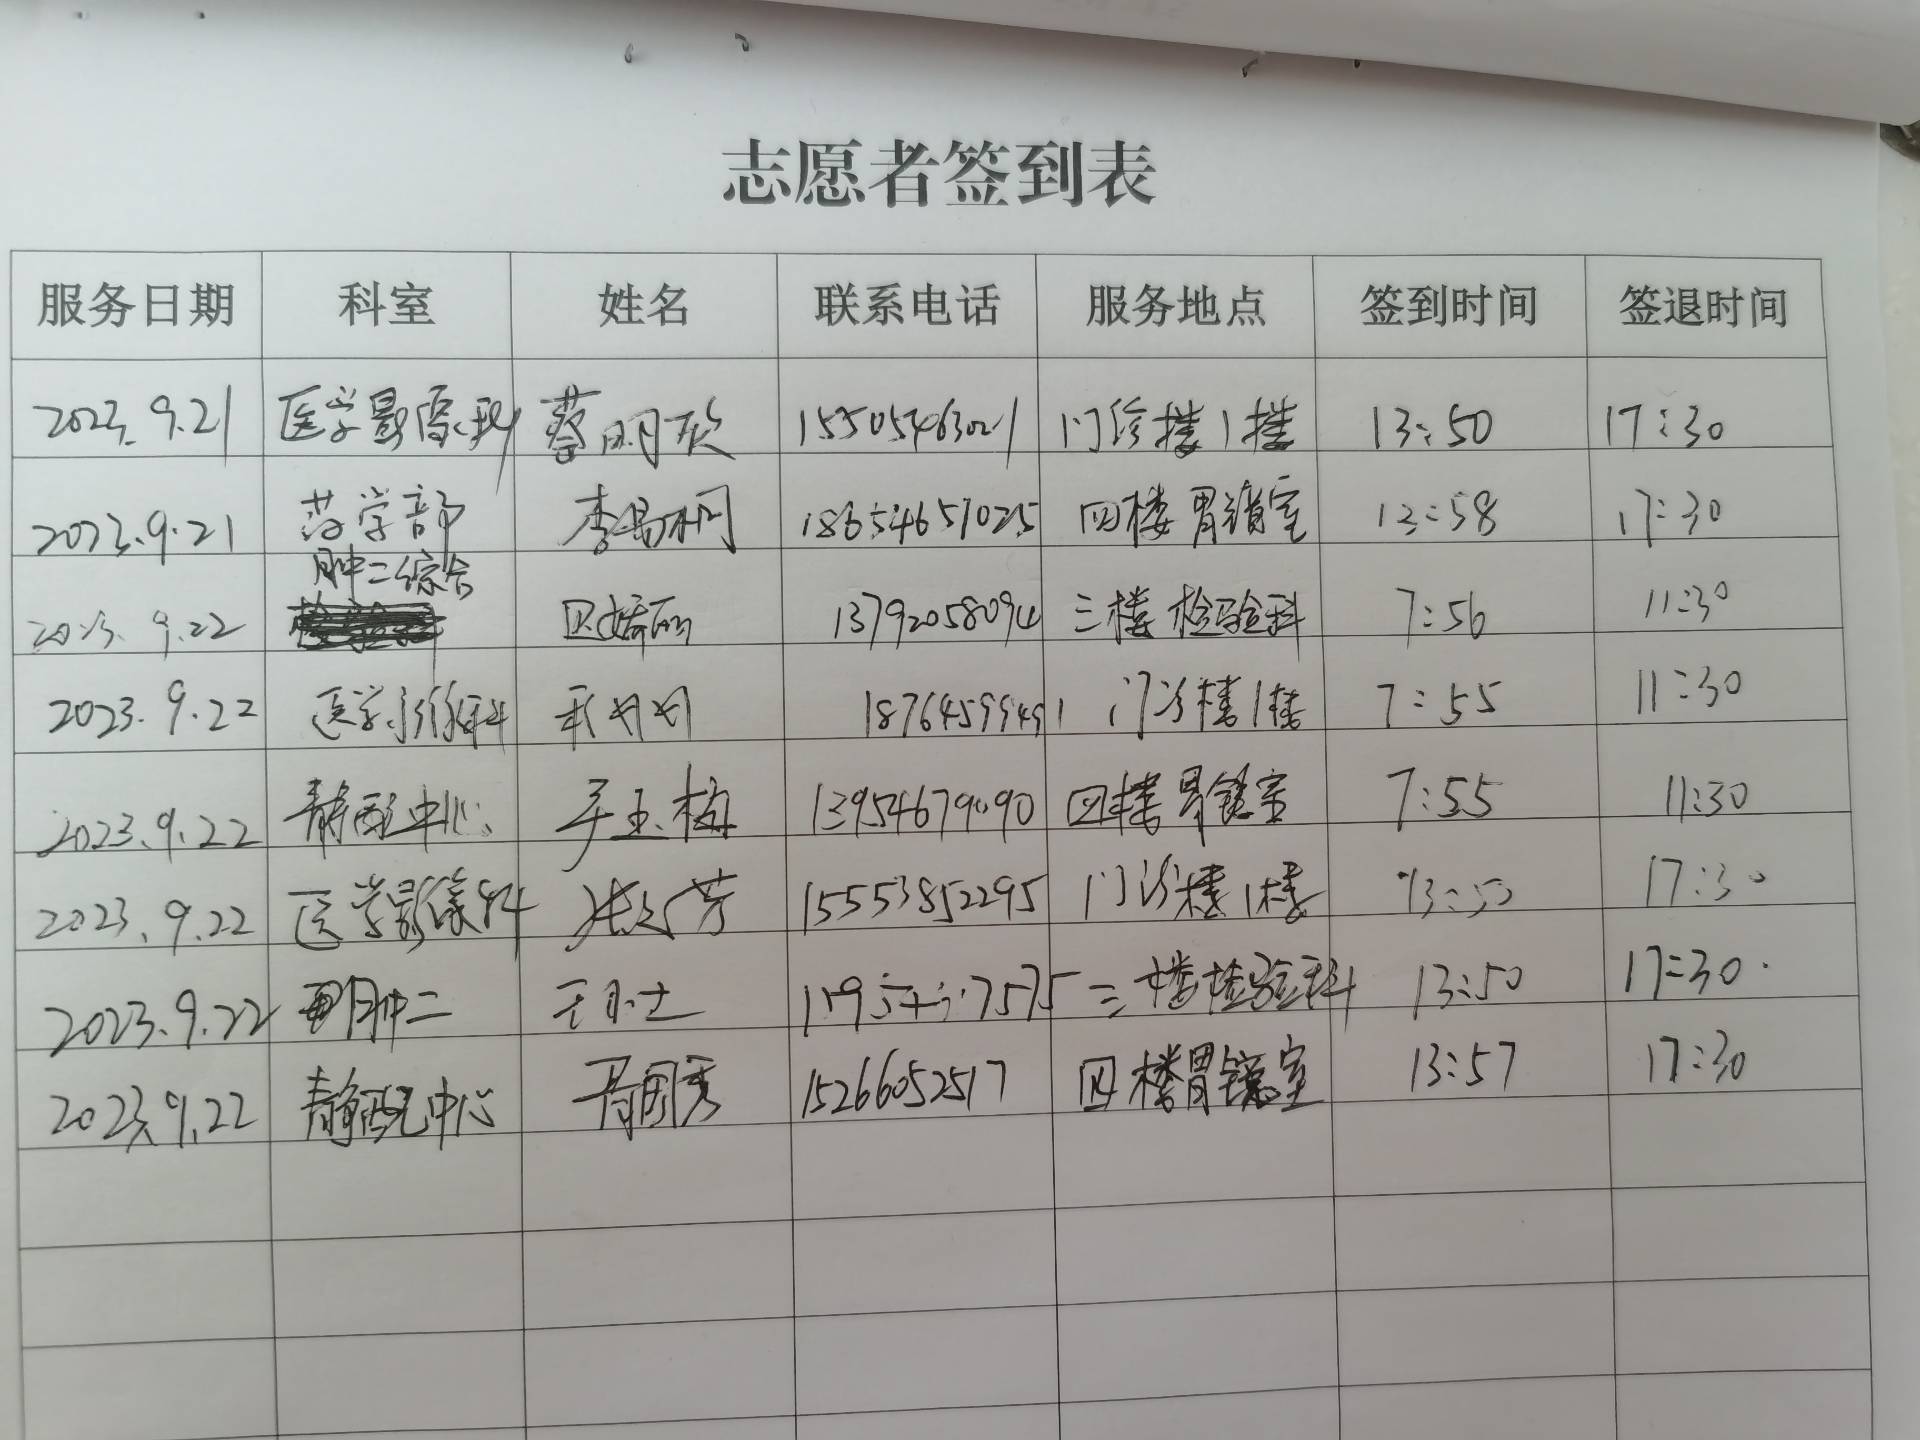 志愿者签到表
服务日期 科室 姓名 联系电话 服务地点 签到时间 签退时间
2023.9.21 医学影像科 蔡明欣 15505463021 门诊楼1楼 13:50 17:30
2023.9.21 药学部 18654657025 四楼胃镜室 17:30
2023.9.22 肿二综合 13792058094 三楼检验科 7:56 11:30
2023.9.22 医学影像科 18764599491 门诊楼1楼 7:55 11:30
2023.9.22 静配中心 玉梅 13954679090 四楼胃镜室 7:55 11:30
2023.9.22 医学影像科 15553852295 门诊楼1楼 13:50 17:30
2023.9.22 肿二 三楼检验科 13:50 17:30
2023.9.22 静配中心 15266052517 四楼胃镜室 13:57 17:30